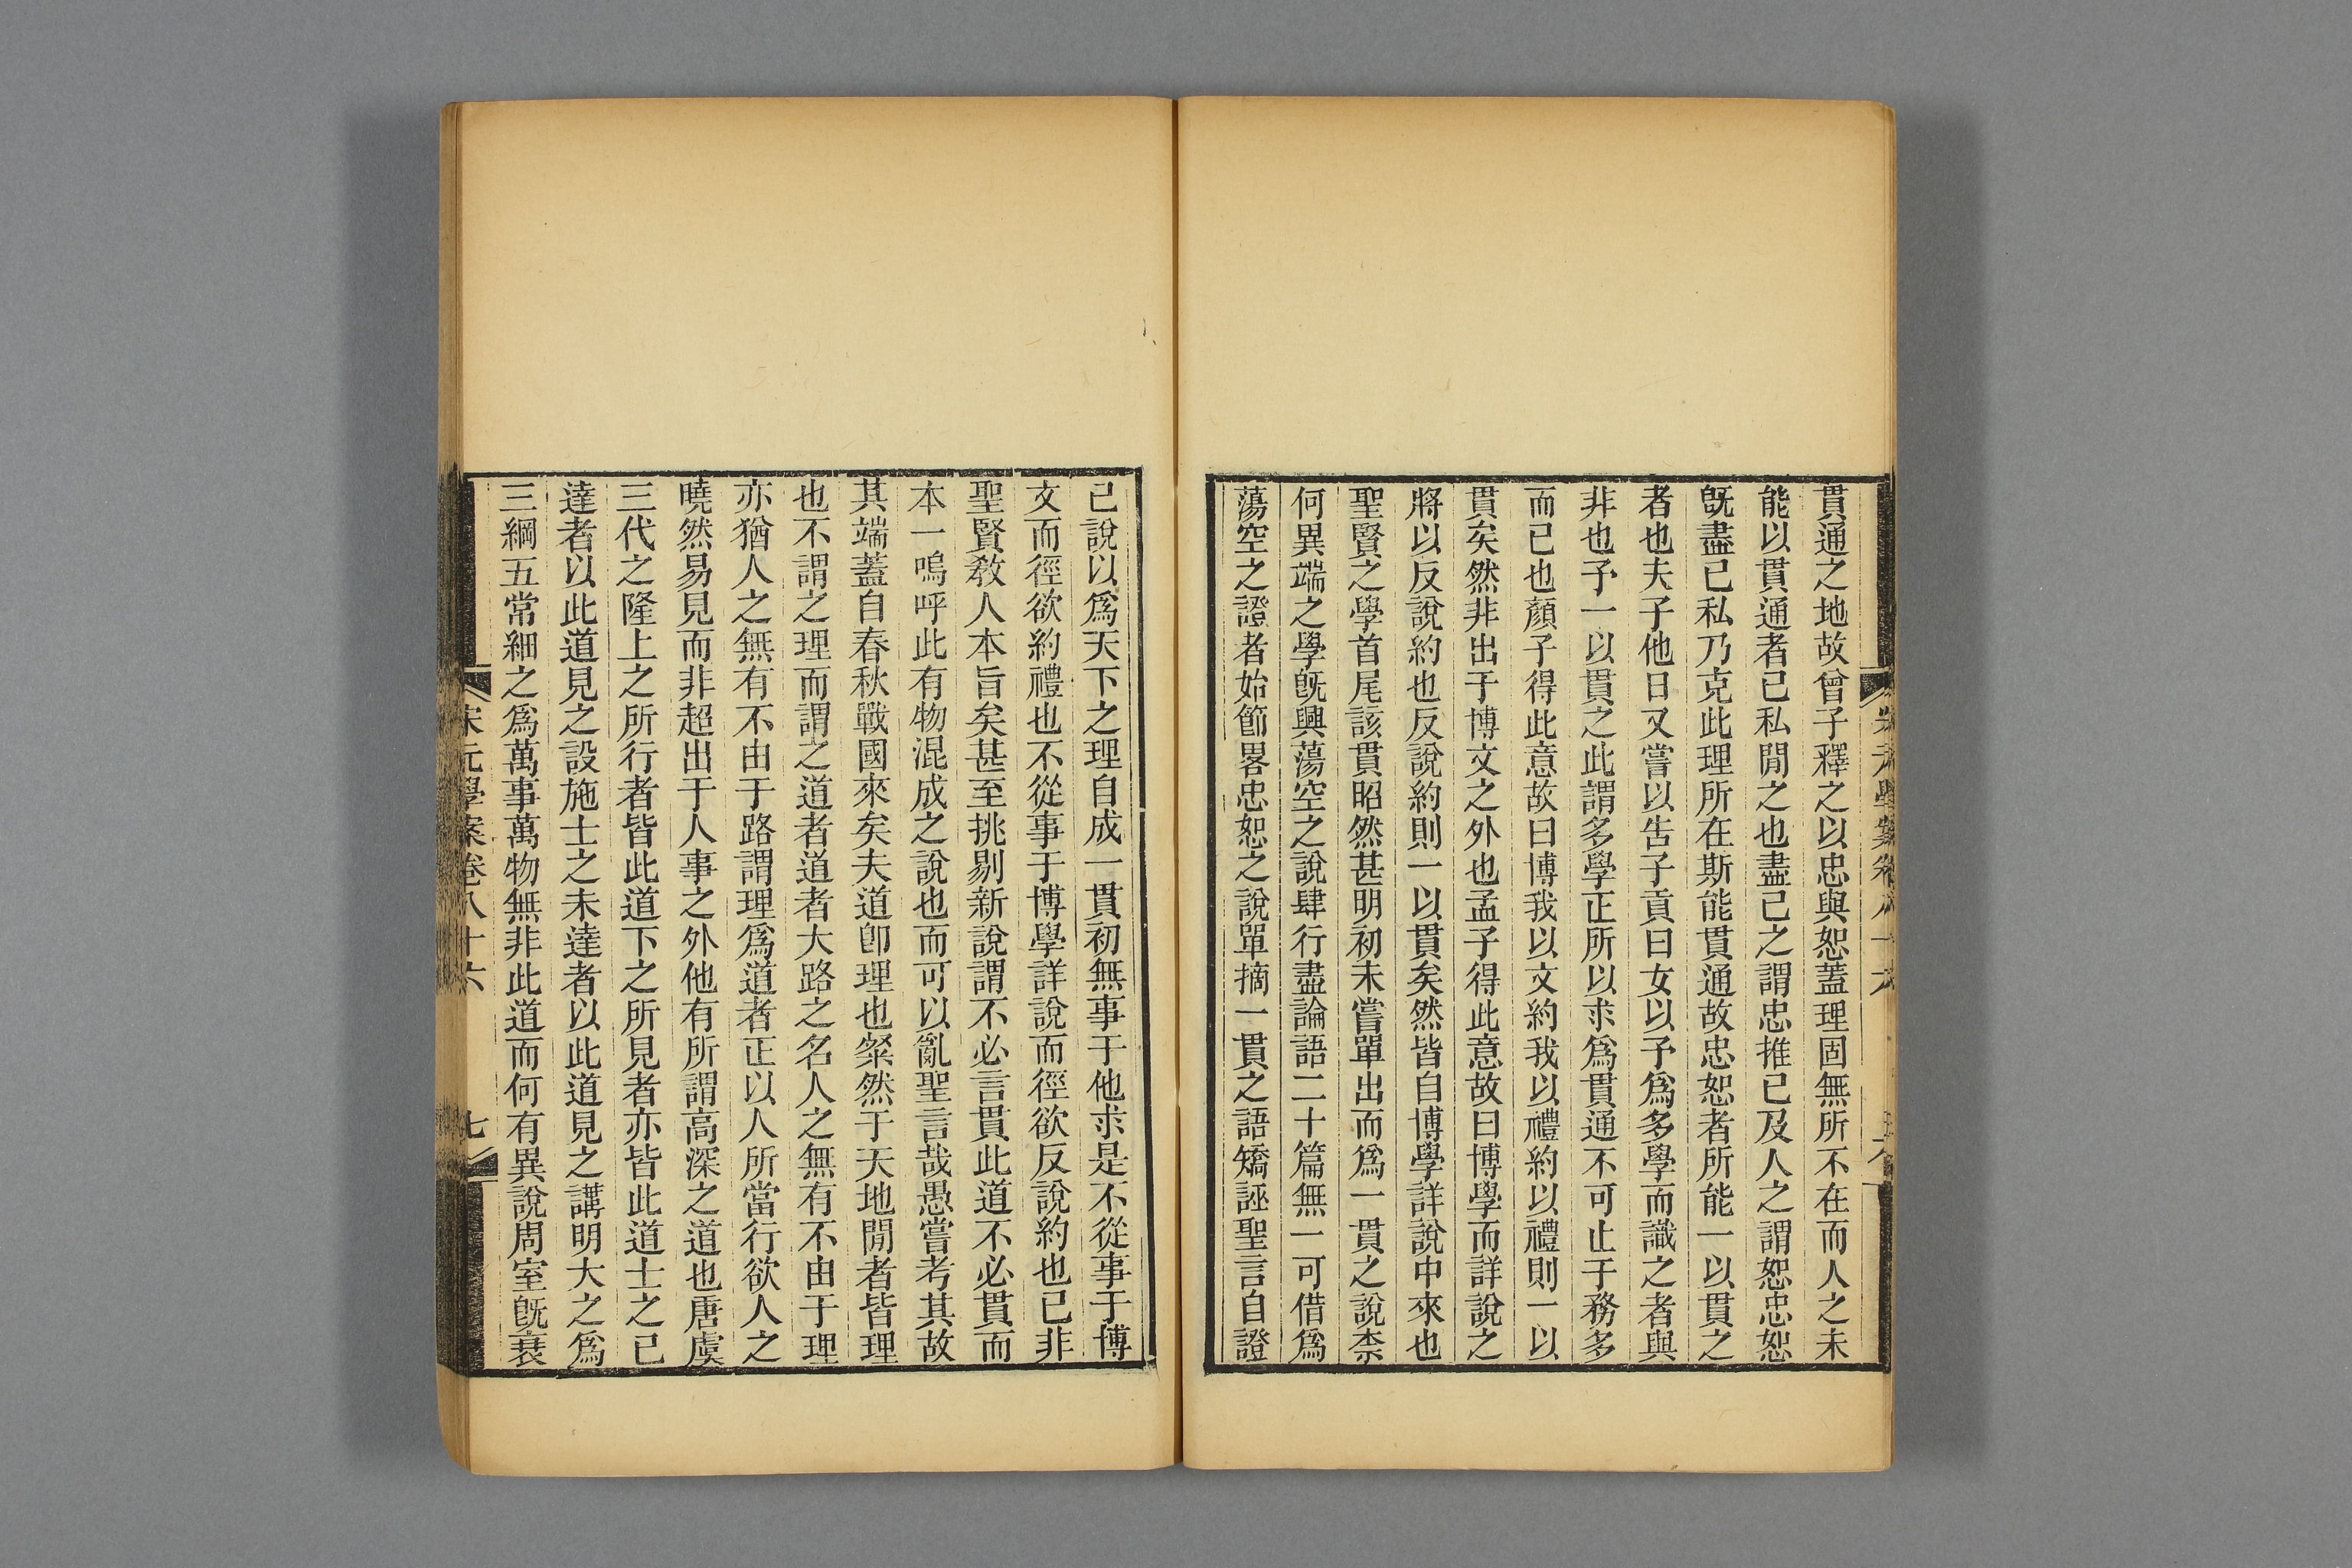 宋元學案卷八十六
貫通之地故曾子釋之以忠與恕蓋理固無所不在而人之未
能以貫通者己私閒之也盡己之謂忠推己及人之謂恕忠恕
旣盡己私乃克此理所在斯能貫通故忠恕者所能一以貫之
者也夫子他日又嘗以告子貢曰女以予爲多學而識之者與
非也予一以貫之此謂多學正所以求爲貫通不可止于務多
而已也顏子得此意故曰博我以文約我以禮約以禮則一以
貫矣然非出于博文之外也孟子得此意故曰博學而詳說之
將以反說約也反說約則一以貫矣然皆自博學詳說中來也
聖賢之學首尾該貫昭然甚明初未嘗單出而爲一貫之說柰
何異端之學旣興蕩空之說肆行盡論語二十篇無一可借爲
蕩空之證者始節畧忠恕之說單摘一貫之語矯誣聖言自證
己說以爲天下之理自成一貫初無事于他求是不從事于博
文而徑欲約禮也不從事于博學詳說而徑欲反說約也已非
聖賢敎人本旨矣甚至挑剔新說謂不必言貫此道不必貫而
本一嗚呼此有物混成之說也而可以亂聖言哉愚嘗考其故
其端蓋自春秋戰國來矣夫道卽理也粲然于天地閒者皆理
也不謂之理而謂之道者道者大路之名人之無有不由于理
亦猶人之無有不由于路謂理爲道者正以人所當行欲人之
曉然易見而非超出于人事之外他有所謂高深之道也唐虞
三代之隆上之所行者皆此道下之所見者亦皆此道士之已
達者以此道見之設施士之未達者以此道見之講明大之爲
三綱五常細之爲萬事萬物無非此道而何有異說周室旣衰
宋元學案卷八十六
七